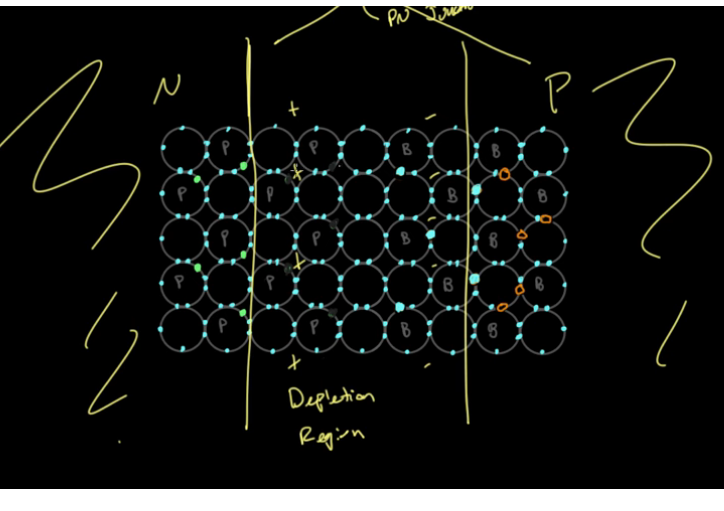 PN
N
P
+
-
P P B B
+ -
P P B B
-
P P B B
+ -
P P B B
P P B B
+
-
Depletion
Region